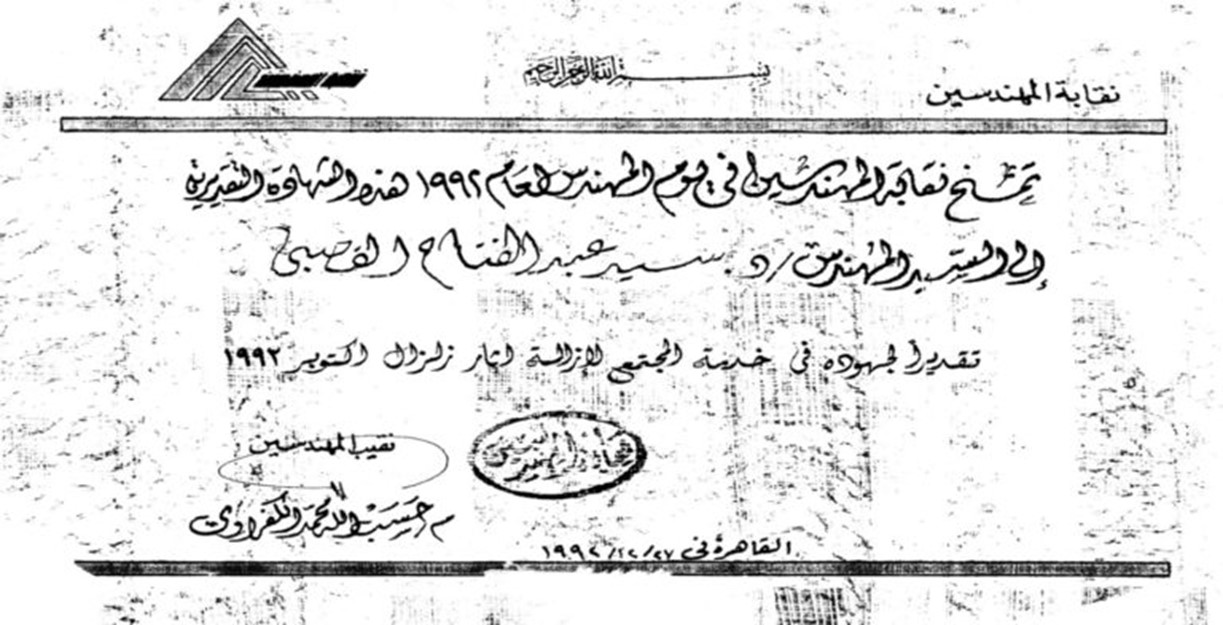 بسم الله الرحمن الرحيم
نقابة المهندسين
تمنح نقابة المهندسين في يوم المهندس لعام ١٩٩٢ هذه الشهادة التقديرية
إلى السيد المهندس / د. سيد عبد الفتاح القصبي
تقديراً لجهوده في خدمة المجتمع لإزالة اثار زلزال اكتوبر ١٩٩٢
نقيب المهندسين
م حسب الله محمد الكفراوى
القاهرة في ٢٧/١٢/١٩٩٢